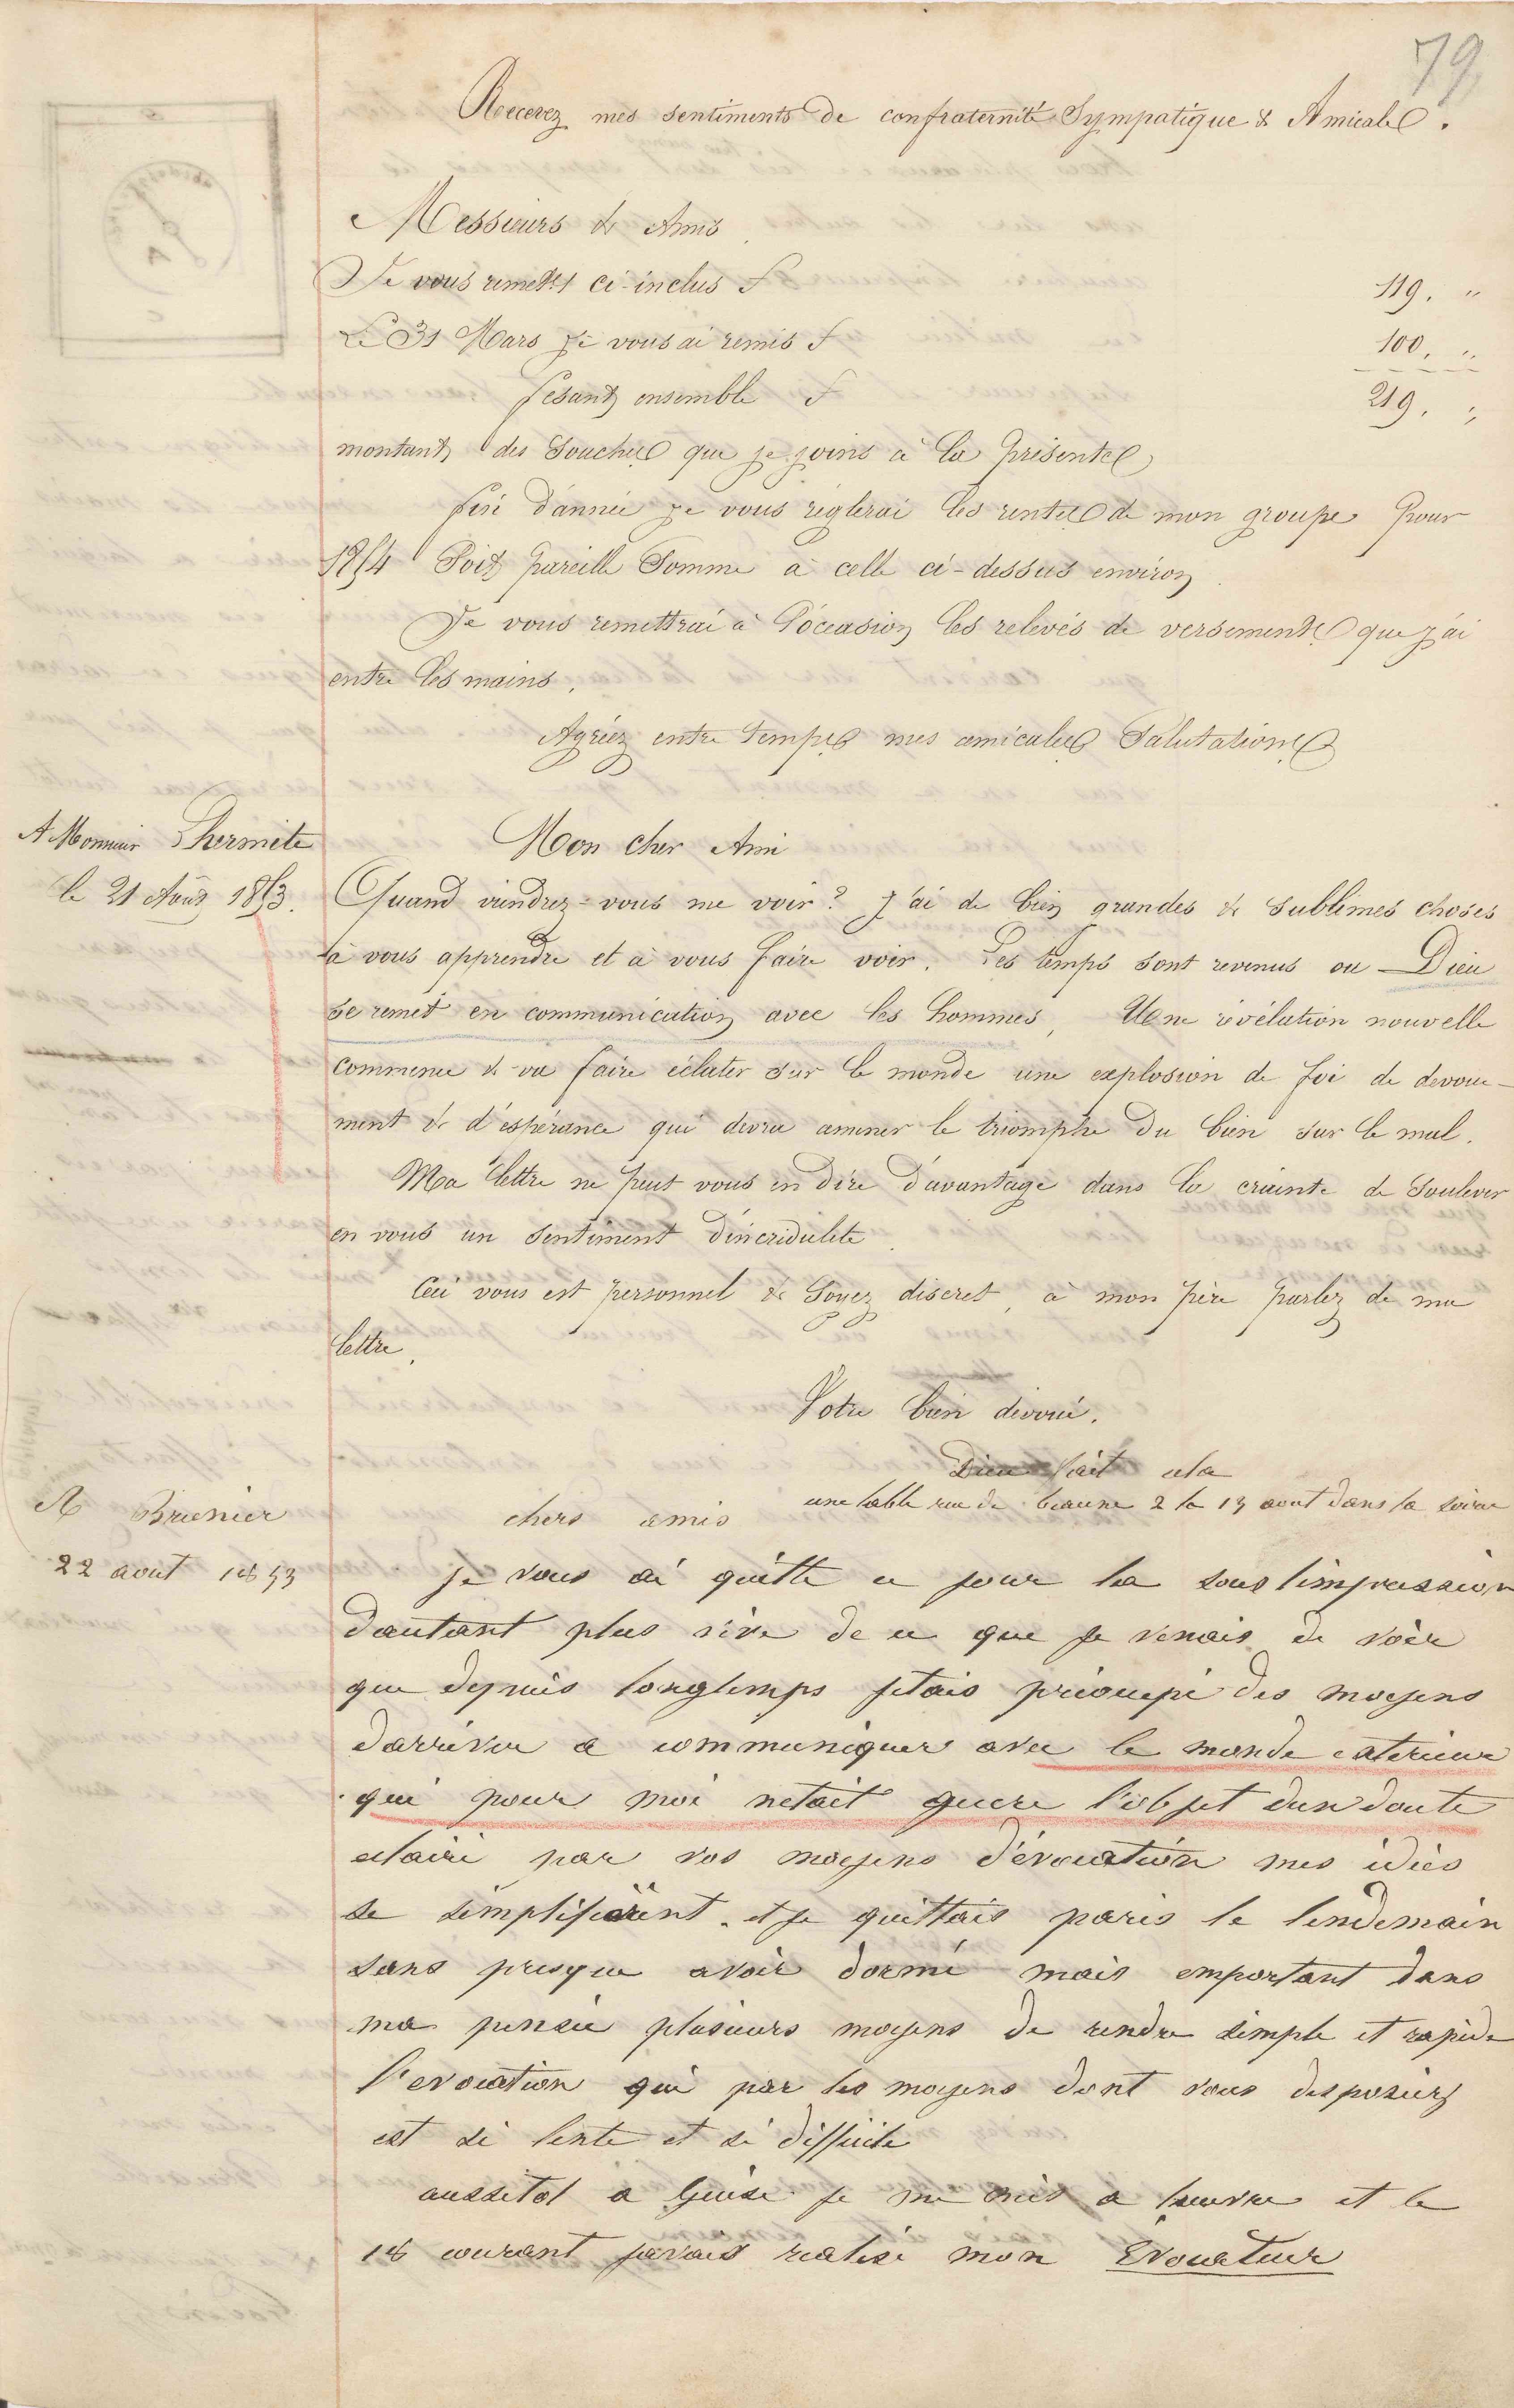 79
Recevez mes sentiments de confraternité Sympatique & Amicale.
Messieurs & Amis
Je vous remets ci-inclus f 119. "
Le 31 Mars je vous ai remis f 100. "
fesant ensemble f 219. "
montant des Souches que je joins à la présente
fin d'année je vous réglerai les rentes de mon groupe pour
1854 Soit pareille Somme à celle ci-dessus environ
Je vous remettrai à l'occasion les relevés de versements que j'ai
entre les mains.
Agréez entre temps mes amicales Salutations
A Monsieur Lhermite
le 21 Août 1853.
Mon cher Ami
Quand viendrez-vous me voir? J'ai de bien grandes & sublimes choses
à vous apprendre et à vous faire voir. Les temps sont revenus ou Dieu
se remet en communication avec les hommes, Une révélation nouvelle
commence & va faire éclater sur le monde une explosion de foi de devoue-
ment & d'éspérance qui devra amener le triomphe du bien sur le mal.
Ma lettre ne peut vous en dire d'avantage dans la crainte de Soulever
en vous un sentiment d'incrédulité
Ceci vous est personnel & Soyez discret, à mon père parlez de ma
lettre.
Votre bien dévoué.
A Brunier
22 aout 1853
Dieu fait cela
une table rue de beaune 2 le 13 aout dans la soirée
chers amis
je vous ai quitté ce jour la sous limpression
dautant plus vive de ce que je venais de voir
que depuis longtemps jetais préoccupé des moyens
darriver a communiquer avec le monde exterieur
qui pour moi netait guere l'objet dun doute
eclairé par vos moyens d'évocation mes idées
se simplifièrent. et je quittais paris le lendemain
sans presque avoir dormi mais emportant dans
ma pensée plusieurs moyens de rendre simple et rapide
l'evocation qui par les moyens dont vous disposiez
est si lente et si difficile
aussitot a Guise je me mis a louvre et le
18 courant javais realisé mon Evocateur